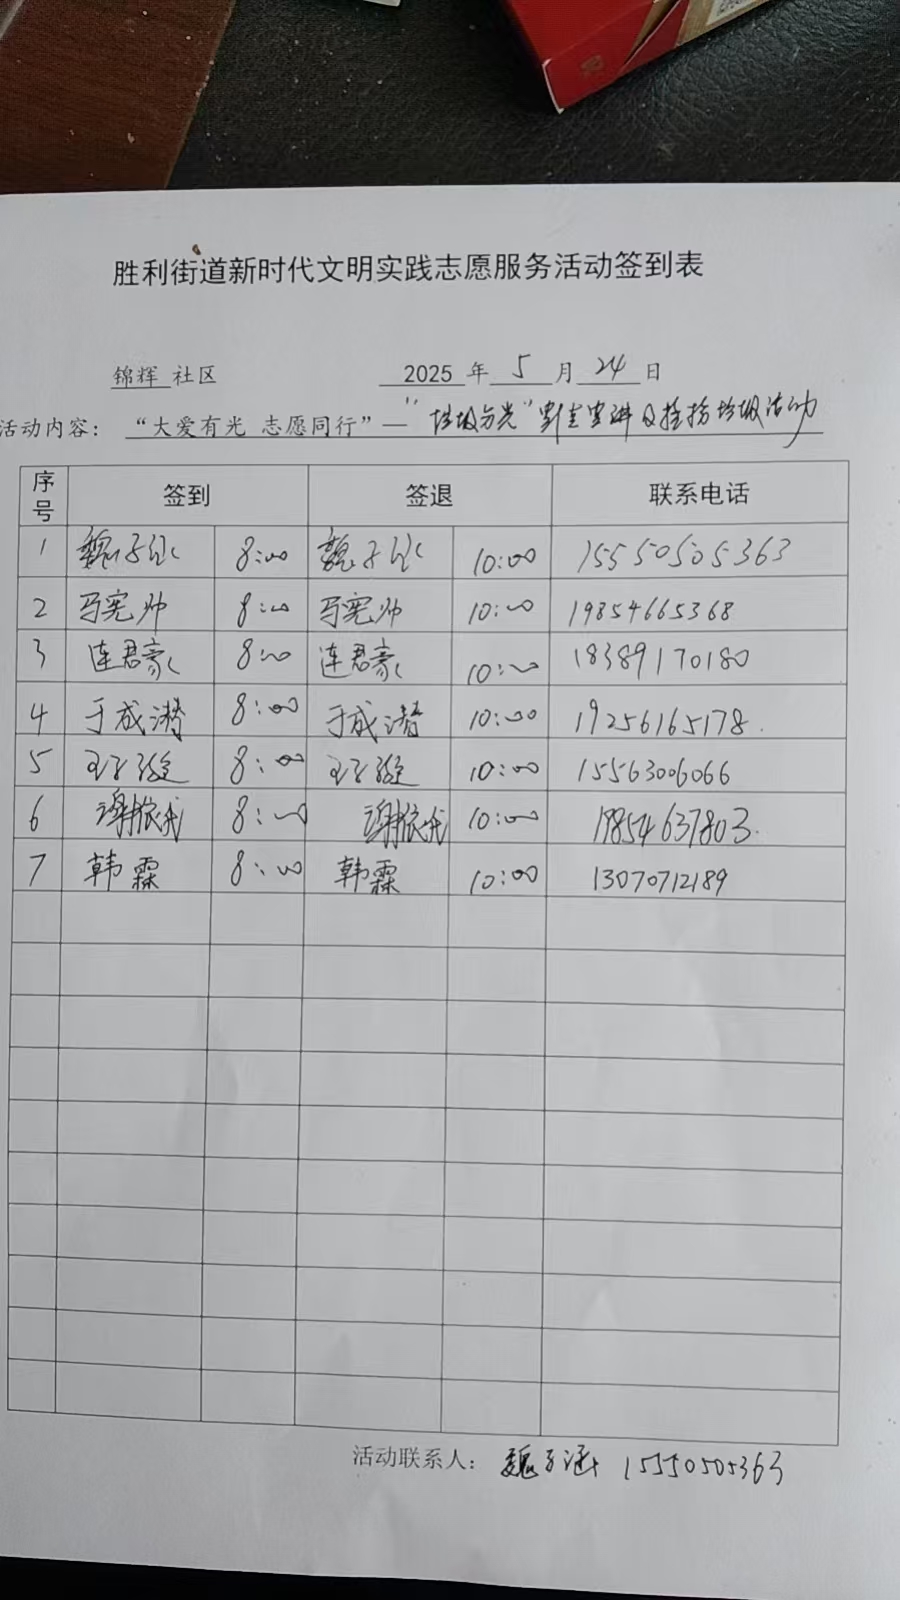 胜利街道新时代文明实践志愿服务活动签到表
锦辉 社区 2025 年 5 月 24 日
活动内容： “大爱有光 志愿同行”—“垃圾分类” 宣讲及捡拾垃圾活动
序号 签到 签退 联系电话
1 魏子涵 8:00 魏子涵 10:00 15550505363
2 马宪帅 8:00 马宪帅 10:00 19854665368
3 连君豪 8:00 连君豪 10:00 18389170180
4 于成潜 8:00 于成潜 10:00 19256165178
5 8:00 10:00 15563006066
6 谢依 8:00 谢依 10:00 19854637803
7 韩霖 8:00 韩霖 10:00 13070712189
活动联系人： 魏子涵 15550505363